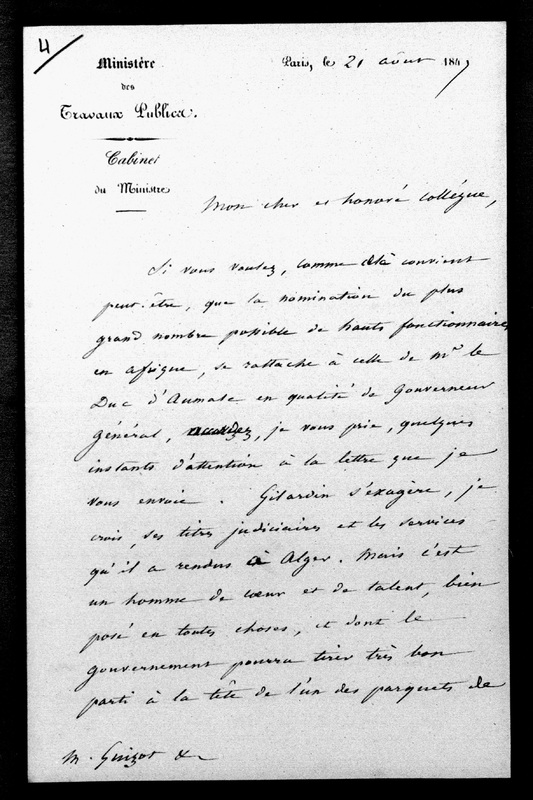 4
Ministère
des
Travaux Publics.
Cabinet
du Ministre
Paris, le 21 août 1847
Mon cher et honoré collègue,
Si vous voulez, comme cela convient
peut-être, que la nomination du plus
grand nombre possible de hauts fonctionnaires
en afrique, se rattache à celle de Mr le
Duc d'Aumale en qualité de Gouverneur
général, accordez, je vous prie, quelques
instants d'attention à la lettre que je
vous envoie. Gilardin s'exagère, je
crois, ses titres judiciaires et les services
qu'il a rendus à Alger. Mais c'est
un homme de cœur et de talent, bien
posé en toutes choses, et dont le
gouvernement pourra tirer très bon
parti à la tête de l'un des parquets de
M. Guizot &c